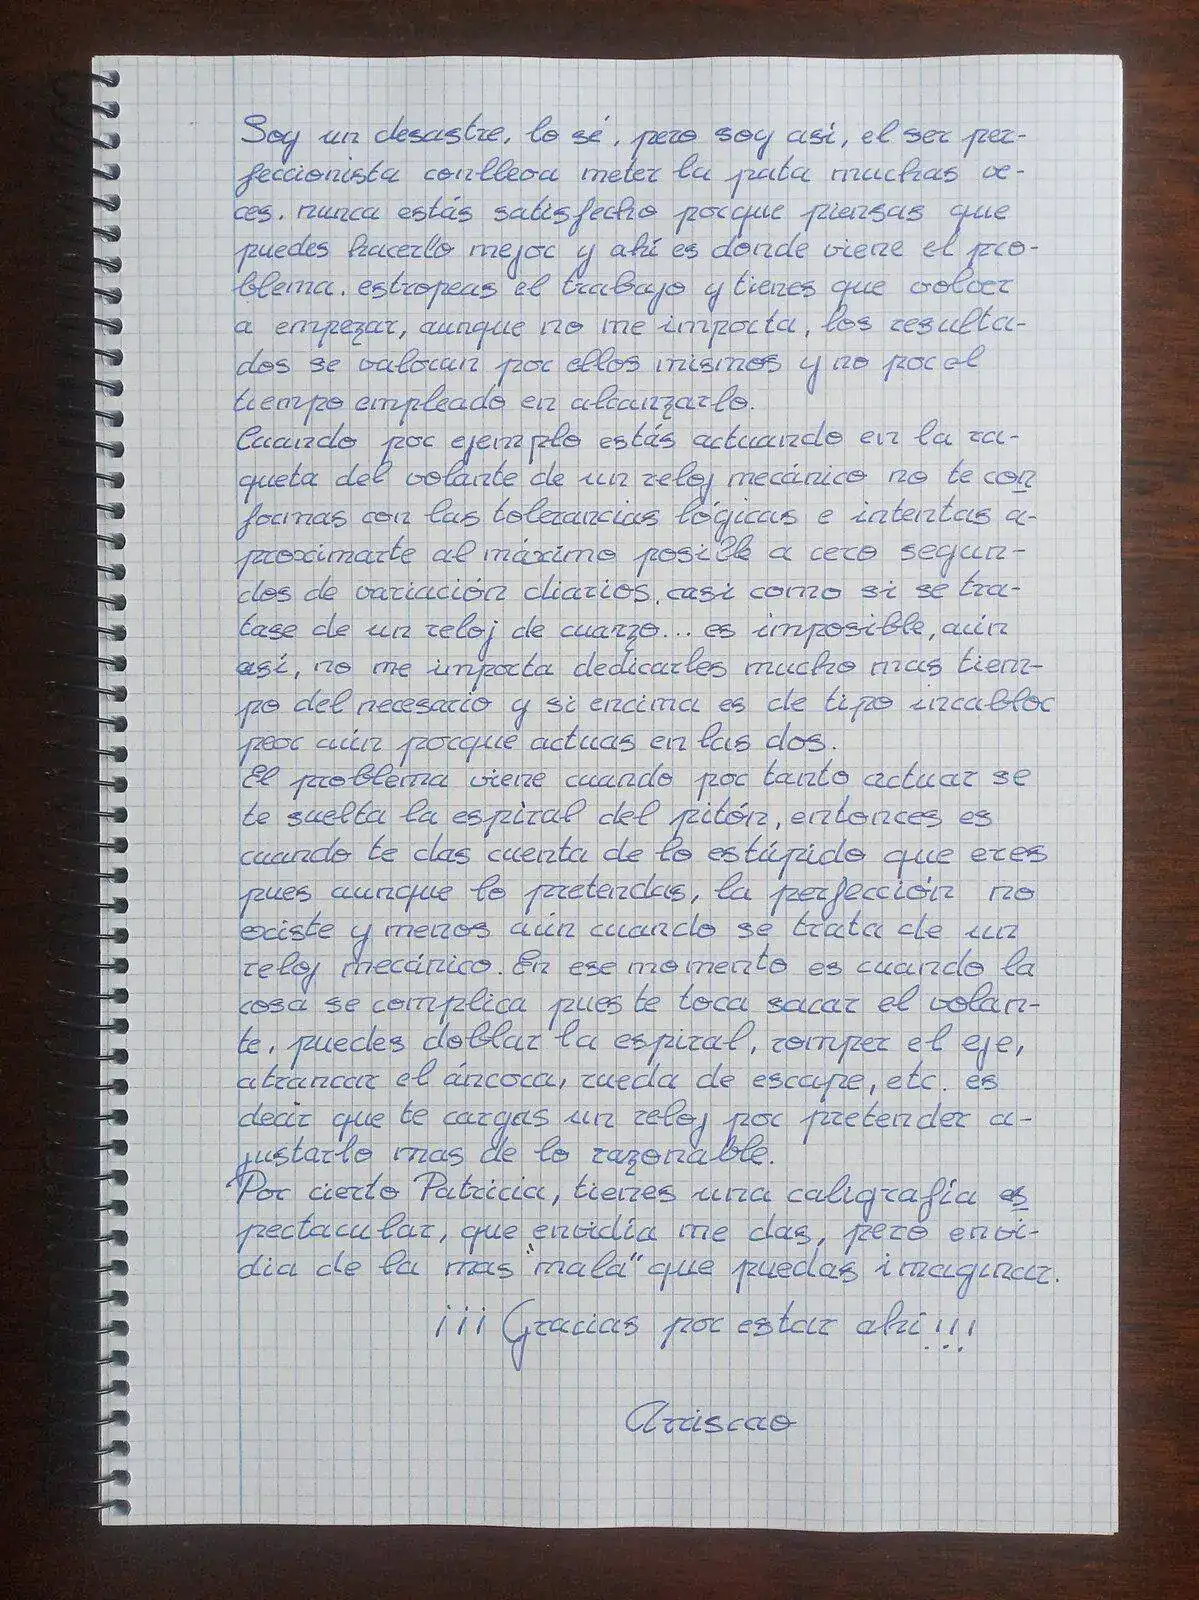 Soy un desastre, lo sé, pero soy así, el ser per-
feccionista conlleva meter la pata muchas ve-
ces. nunca estás satisfecho porque piensas que
puedes hacerlo mejor y ahí es donde viene el pro-
blema. estropeas el trabajo y tienes que volver
a empezar, aunque no me importa, los resulta-
dos se valoran por ellos mismos y no por el
tiempo empleado en alcanzarlo.
Cuando por ejemplo estás actuando en la ra-
queta del volante de un reloj mecánico no te con
formas con las tolerancias lógicas e intentas a-
proximarte al máximo posible a cero segun-
dos de variación diarios, casi como si se tra-
tase de un reloj de cuarzo... es imposible, aún
así, no me importa dedicarles mucho mas tiem-
po del necesario y si encima es de tipo incabloc
peor aún porque actuas en las dos.
El problema viene cuando por tanto actuar se
te suelta la espiral del pitón, entonces es
cuando te das cuenta de lo estúpido que eres
pues aunque lo pretendas, la perfección no
existe y menos aún cuando se trata de un
reloj mecánico. En ese momento es cuando la
cosa se complica pues te toca sacar el volan-
te, puedes doblar la espiral, romper el eje,
atrancar el áncora, rueda de escape, etc. es
decir que te cargas un reloj por pretender a-
justarlo mas de lo razonable.
Por cierto Patricia, tienes una caligrafía es
pectacular, que envidia me das, pero envi-
dia de la mas "mala" que puedas imaginar.
¡¡¡Gracias por estar ahí!!!
Arriscao